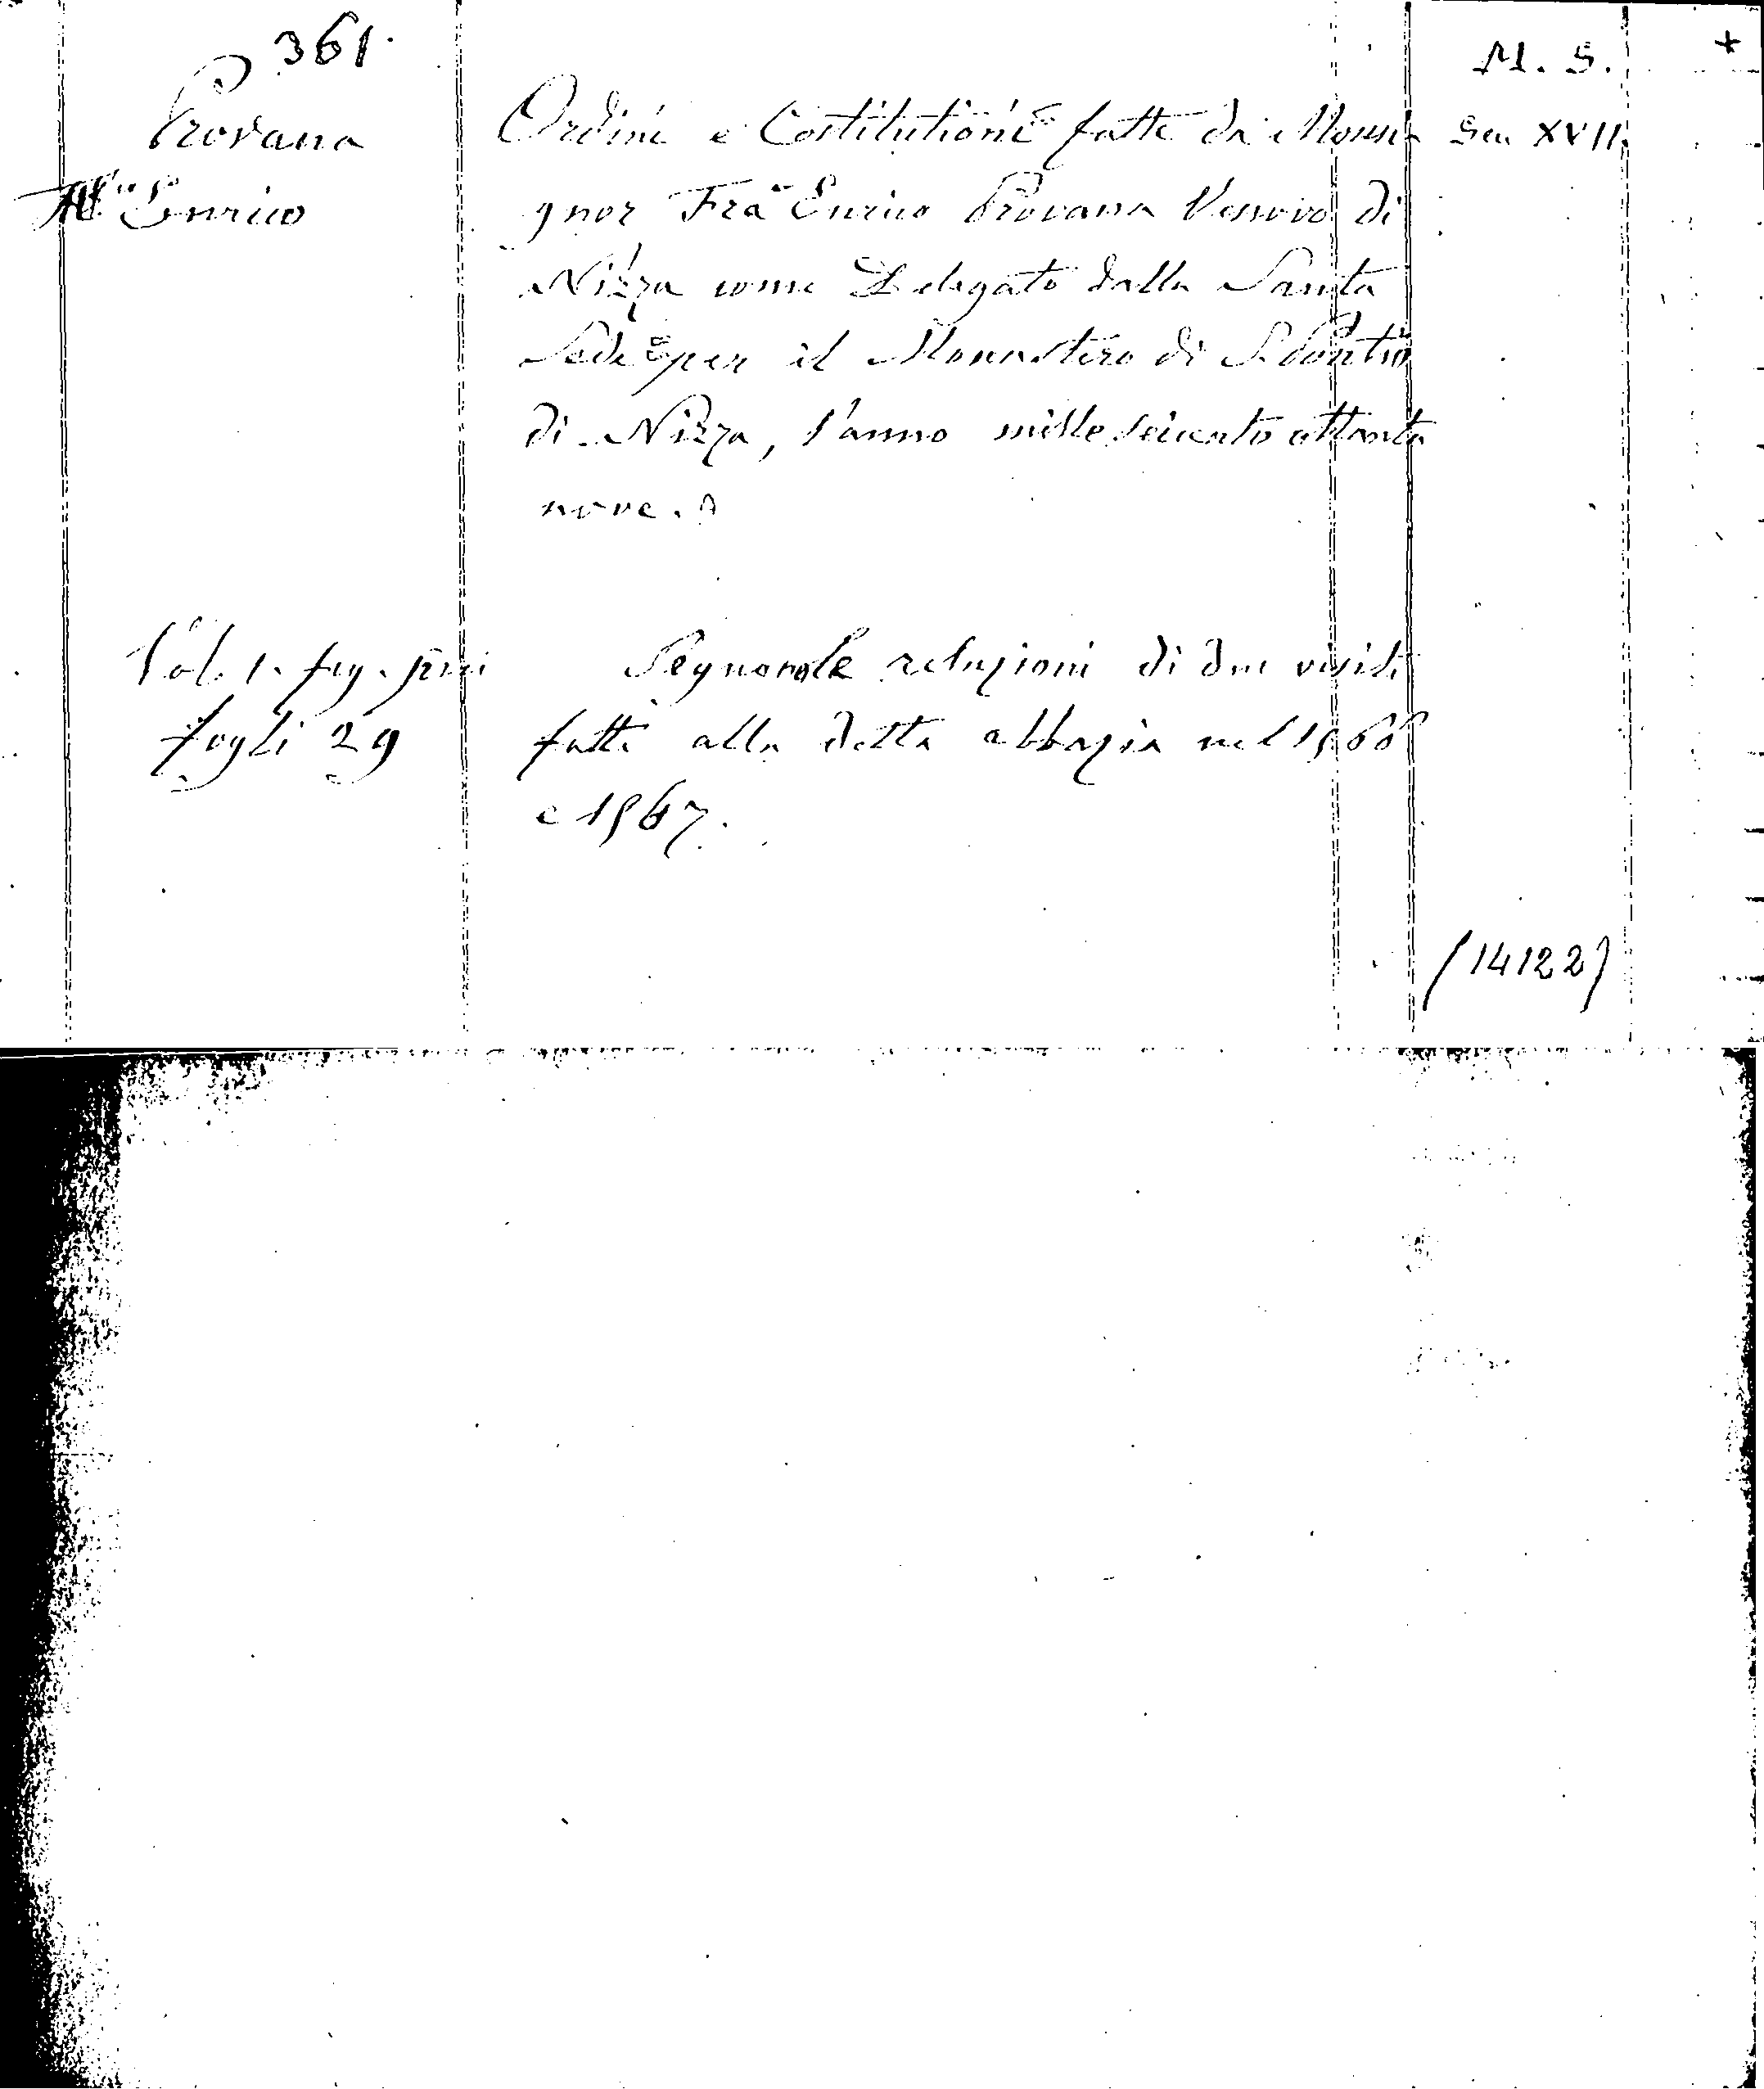 361.
M. S. +
Provana
Enrico
Ordini e Costitutioni fatte da Monsi- Sec. XVII.
gnor Fra Enrico Provana Vescovo di
Nizza come Delegato dalla Santa
Sede per il Monastero di S. Pontio
di Nizza, l'anno mille seicento ottanta
nove.
Vol. 1. leg. perg.
fogli 29
Seguono le relazioni di due visite
fatte alla detta abbazia nel 1566
e 1567.
(14122)